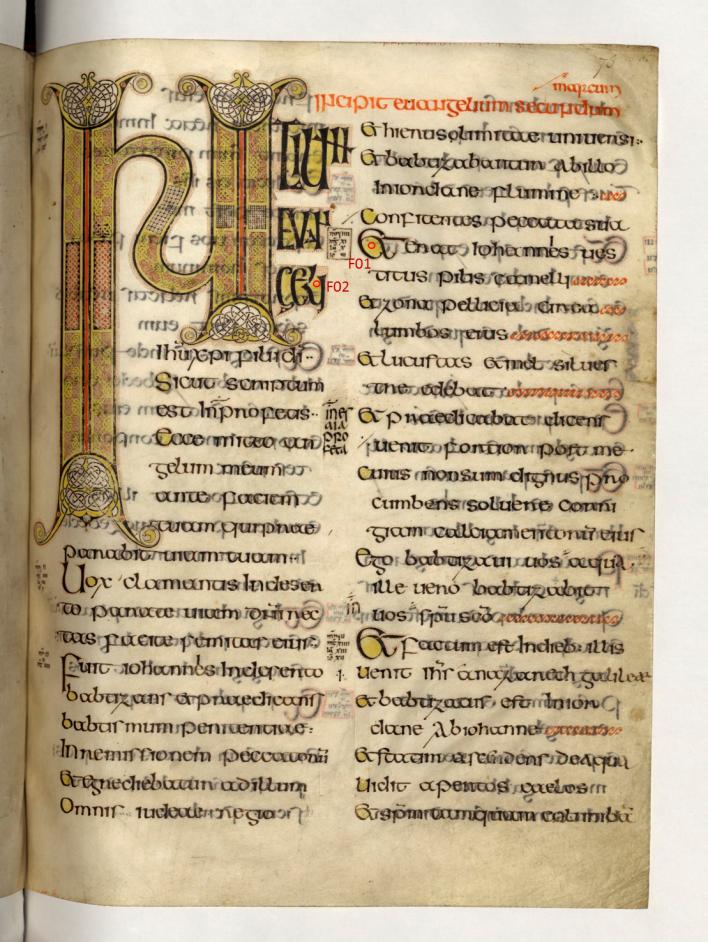 marcum
Incipit euangelium secundum
INITIUM
EVAN
GELII
ihu xpi filii di
Sicut scriptum
est In profetis
Ecce mitto an
gelum meum
ante faciem
tuam qui prae
parabit uiam tuam
Uox clamantis In deser
to parate uiam dni rec
tas facite semitas eius
Fuit Iohannis In deserto
babtizans et praedicans
babtismum penitentiae
In remissionem peccatorū
Et egrediebatur ad illum
Omnis iudeae regio
Et hierusolimitae uniuersi
Et babtizabantur Ab illo
In iordane flumine
Confitentes peccata sua
Et erat Iohannes ues
titus pilis camelli
Et zona pellicia circa
lumbos eius
Et lucustas et mel silues
tre edebat
Et praedicabat dicens
uenit fortior post me
cuius non sum dignus pro
cumbens soluere corri
giam calciamentorū eius
Ego babtizaui uos aqua
ille uero babtizabit
uos spu sco
Et factum est In dieb illis
uenit ihs a nazareth galileae
Et babtizatus est In ior
dane Ab iohanne
Et statim ascendens de aqua
Uidit apertos caelos
Et spm tamquam columba
F01
F02